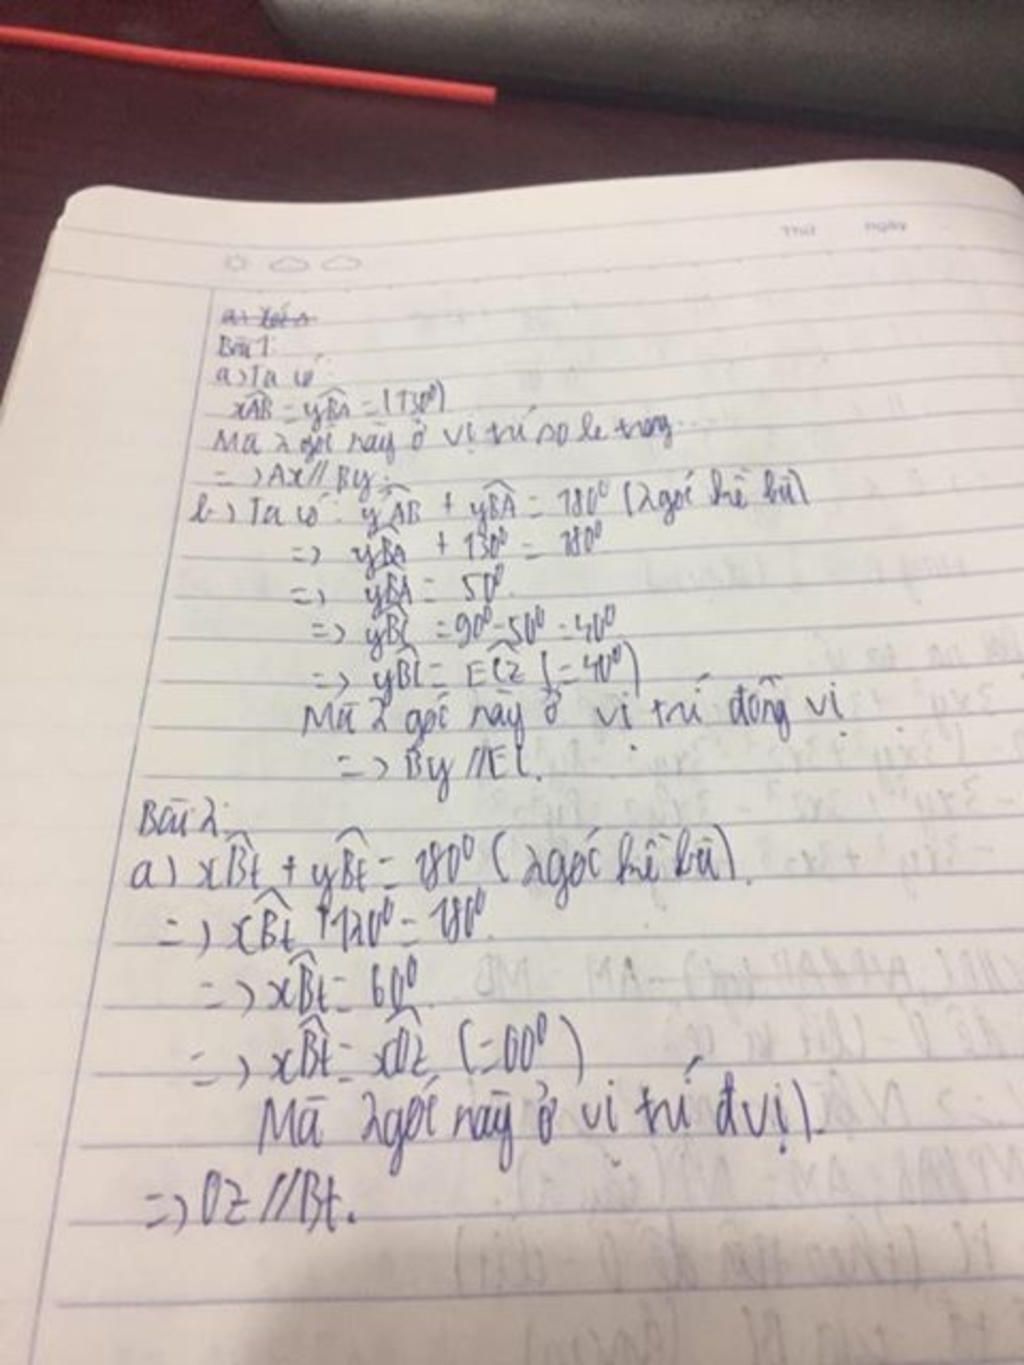 Thứ ngày
Bài 1:
a) Ta có
xAB = yBA = (130⁰)
Mà 2 góc này ở vị trí so le trong
=> Ax // By.
b) Ta có: yAB + yBA = 180⁰ (2 góc kề bù)
=> yBA + 130⁰ = 180⁰
=> yBA = 50⁰.
=> yBC = 90⁰-50⁰ =40⁰
=> yBC = ECz (=40⁰)
Mà 2 góc này ở vị trí đồng vị
=> By // EC.
Bài 2:
a) xBt + yBt = 180⁰ (2 góc kề bù).
=> xBt + 120⁰ = 180⁰.
=> xBt = 60⁰.
=> xBt = xOz (=60⁰)
Mà 2 góc này ở vị trí đvị).
=> Oz // Bt.